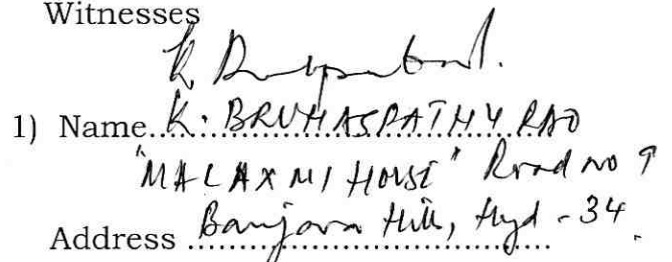 Witnesses
1) Name..K. BRUHASPATHY RAO
"MALAXMI HOUSE" Road no 9
Address ..Banjara Hills, Hyd - 34.